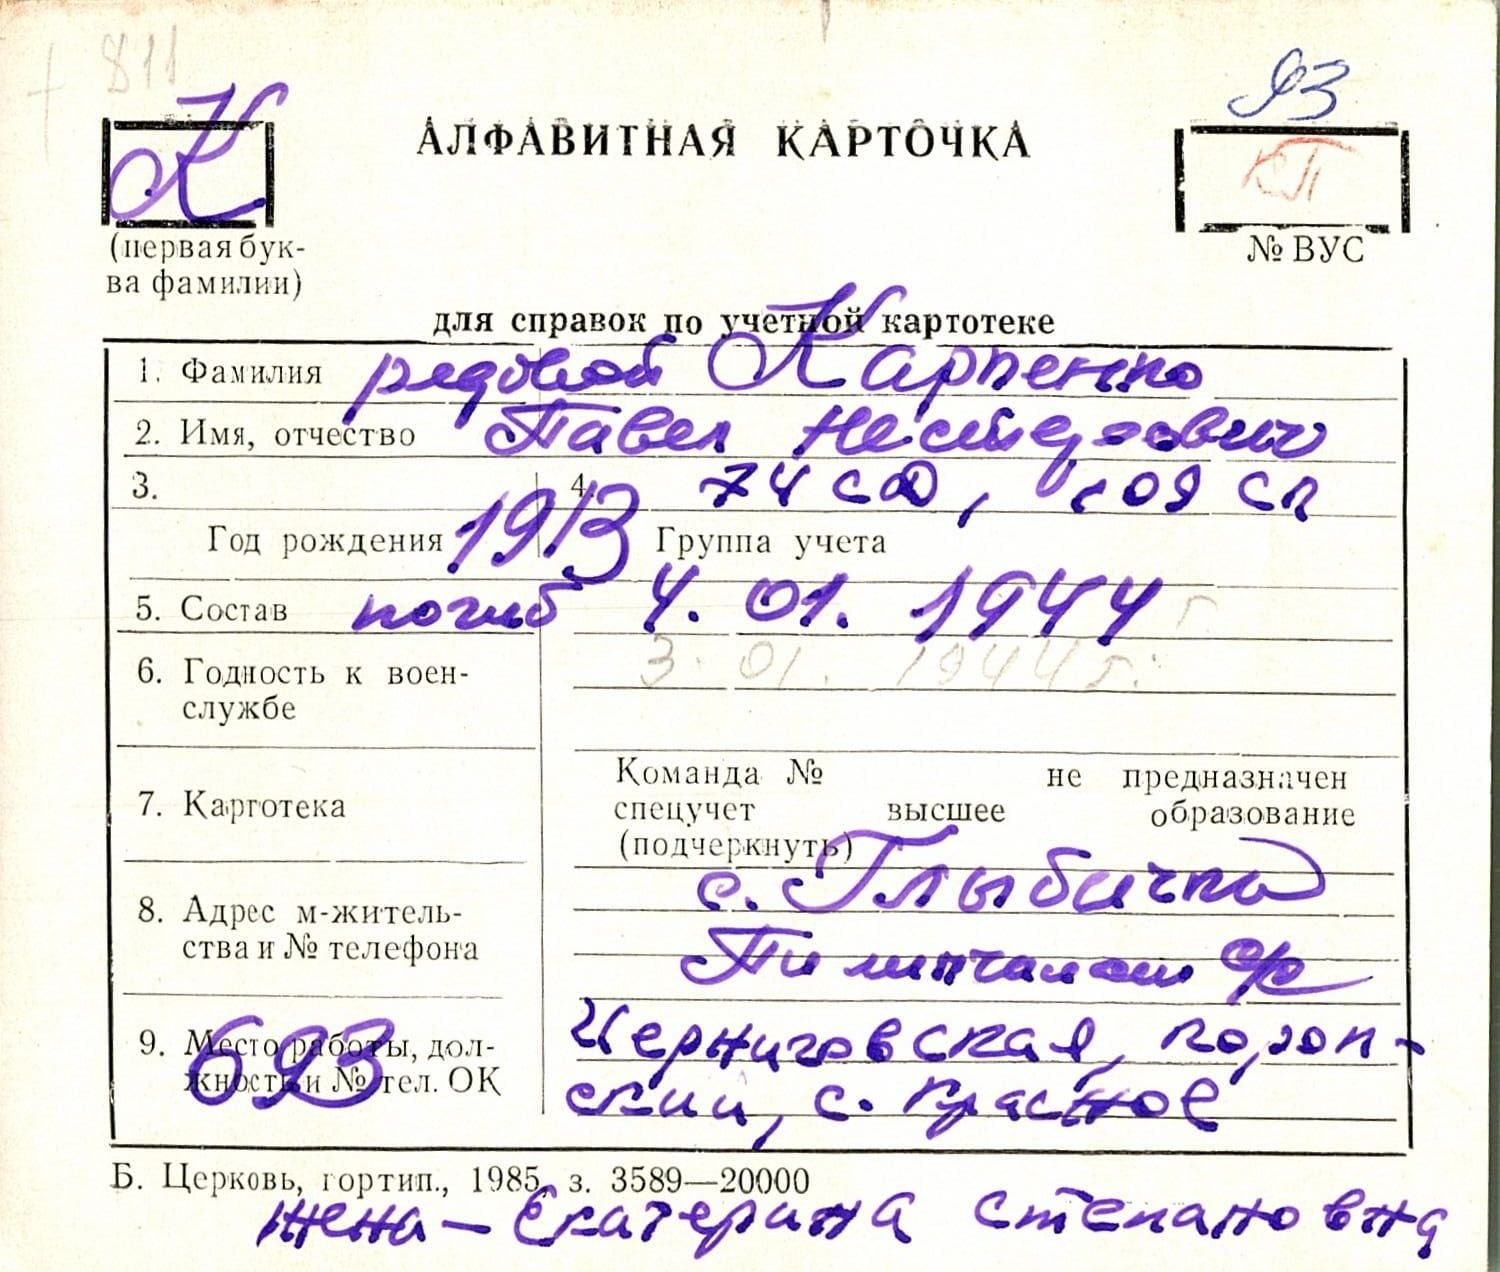 811
93
К
АЛФАВИТНАЯ КАРТОЧКА
КП
(первая бук-
ва фамилии)
№ ВУС
для справок по учетной картотеке
1. Фамилия рядовой Карпенко
2. Имя, отчество Павел Нестерович
3. 4. 74 СД, 109 сп
Год рождения 1913 Группа учета
5. Состав погиб 4. 01. 1944 г
3. 01. 1944 г.
6. Годность к воен-
службе
Команда № не предназначен
7. Картотека спецучет высшее образование
(подчеркнуть)
с. Глыбичка
8. Адрес м-житель-
ства и № телефона
Черниговская, Короп-
9. Место работы, дол-
жность и № тел. ОК
693
ский, с. Красное
Б. Церковь, гортип., 1985, з. 3589—20000
жена — Екатерина Степановна